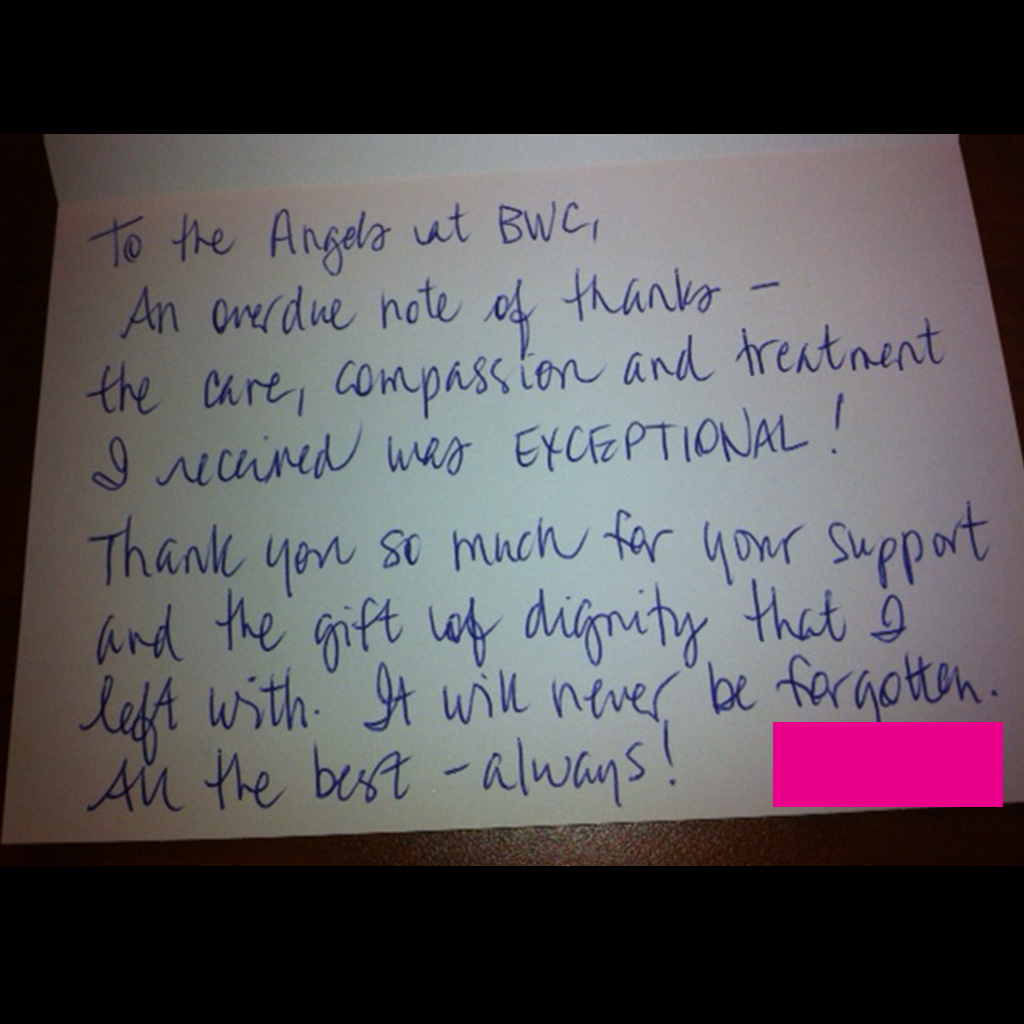 To the Angels at BWC,
An overdue note of thanks -
the care, compassion and treatment
I received was EXCEPTIONAL!
Thank you so much for your support
and the gift of dignity that I
left with. It will never be forgotten.
All the best - always!